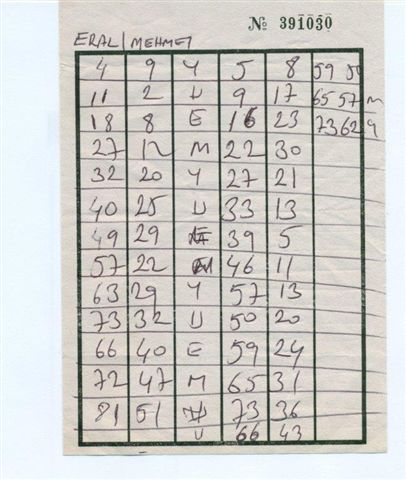 № 391030
ERAL/MEHMET
4 9 Y 5 8 59 50
11 2 U 9 17 65 57 M
18 8 E 16 23 73 62 9
27 12 M 22 30
32 20 Y 27 21
40 25 U 33 13
49 29 39 5
57 22 46 11
63 29 Y 57 13
73 32 U 50 20
66 40 E 59 24
72 47 M 65 31
81 51 73 36
U 66 43